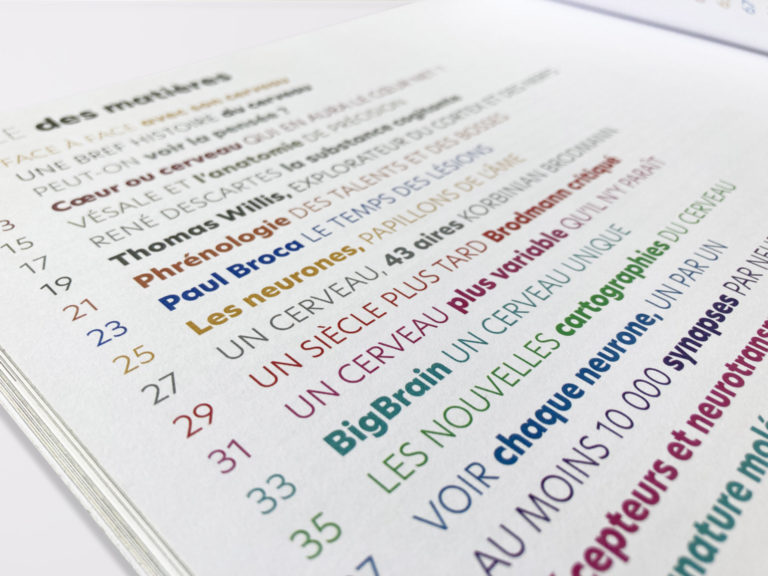 des matières
FACE À FACE avec son cerveau
UNE BREF HISTOIRE du cerveau
PEUT-ON voir la pensée ?
3 Cœur ou cerveau QUI EN AURA LE CŒUR NET ?
15 VÉSALE ET l'anatomie DE PRÉCISION
17 RENÉ DESCARTES la substance cognante
19 Thomas Willis, EXPLORATEUR DU CORTEX ET DES NERFS
21 Phrénologie DES TALENTS ET DES BOSSES
23 Paul Broca LE TEMPS DES LÉSIONS
25 Les neurones, PAPILLONS DE L'ÂME
27 UN CERVEAU, 43 aires KORBINIAN BRODMANN
29 UN SIÈCLE PLUS TARD Brodmann critiqué
31 UN CERVEAU plus variable QU'IL N'Y PARAÎT
33 BigBrain UN CERVEAU UNIQUE
35 LES NOUVELLES cartographies DU CERVEAU
VOIR chaque neurone, UN PAR UN
AU MOINS 10 000 synapses PAR NEU
cepteurs et neurotransm
nature molé